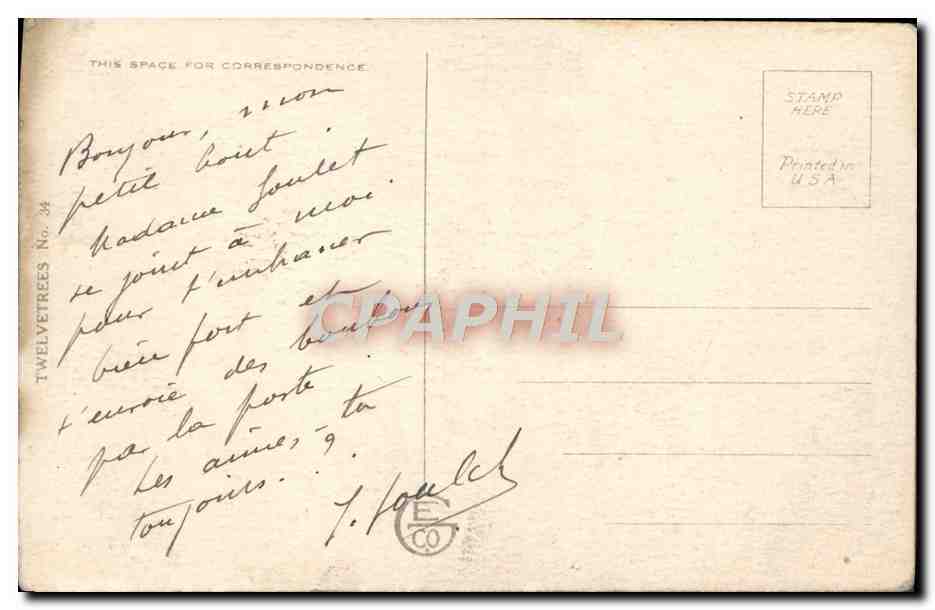 THIS SPACE FOR CORRESPONDENCE
Bonjour, mon
petit bout.
Madame Soulet
se joint à moi
pour t'embrasser
bien fort et
t'envoie des bonbons
par la poste.
Les aimes-tu
toujours...?
J. Soulet
TWELVETREES No. 34
STAMP
HERE
Printed in
U S A
CPAPHIL
E
CO.